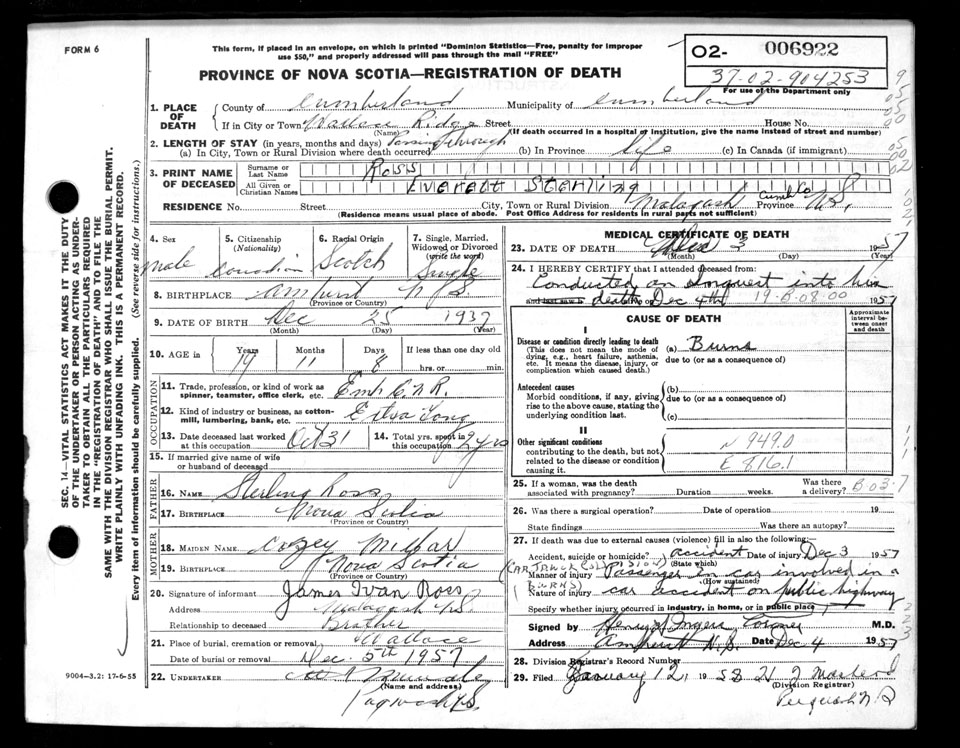 FORM 6
This form, if placed in an envelope, on which is printed "Dominion Statistics—Free, penalty for improper
use $50," and properly addressed will pass through the mail "FREE"
PROVINCE OF NOVA SCOTIA—REGISTRATION OF DEATH
02- 006922
37-02-904253
For use of the Department only
1. PLACE OF DEATH
County of Cumberland Municipality of Cumberland
If in City or Town Wallace Ridge Street House No.
(Name) (If death occurred in a hospital or institution, give the name instead of street and number)
2. LENGTH OF STAY (in years, months and days)
(a) In City, Town or Rural Division where death occurred Passing through (b) In Province life (c) In Canada (if immigrant)
3. PRINT NAME OF DECEASED
Surname or Last Name Ross
All Given or Christian Names Everett Sterling
RESIDENCE No. Street City, Town or Rural Division Malagash Cumb Co Province N.S.
(Residence means usual place of abode. Post Office Address for residents in rural parts not sufficient)
4. Sex Male
5. Citizenship (Nationality) Canadian
6. Racial Origin Scotch
7. Single, Married, Widowed or Divorced (write the word) Single
8. BIRTHPLACE Amherst N S
(Province or Country)
9. DATE OF BIRTH Dec 25 1937
(Month) (Day) (Year)
10. AGE in Years 19 Months 11 Days 8 If less than one day old
hrs. or min.
OCCUPATION
11. Trade, profession, or kind of work as spinner, teamster, office clerk, etc. C.N.R.
12. Kind of industry or business, as cotton-mill, lumbering, bank, etc. Gang
13. Date deceased last worked at this occupation Oct 31
14. Total yrs. spent in this occupation 2 yrs
15. If married give name of wife or husband of deceased
FATHER
16. NAME Sterling Ross
17. BIRTHPLACE Nova Scotia
(Province or Country)
MOTHER
18. MAIDEN NAME Millar
19. BIRTHPLACE Nova Scotia
(Province or Country)
20. Signature of informant James Ivan Ross
Address Malagash N.S.
Relationship to deceased Brother
21. Place of burial, cremation or removal Wallace
Date of burial or removal Dec. 5th 1957
22. UNDERTAKER
(Name and address)
Pugwash N.S.
9004-3.2: 17-6-55
SEC. 14—VITAL STATISTICS ACT MAKES IT THE DUTY
OF THE UNDERTAKER OR PERSON ACTING AS UNDER-
TAKER TO OBTAIN ALL THE PARTICULARS REQUIRED
IN THE "REGISTRATION OF DEATH" AND TO FILE THE
SAME WITH THE DIVISION REGISTRAR WHO SHALL ISSUE THE BURIAL PERMIT.
WRITE PLAINLY WITH UNFADING INK. THIS IS A PERMANENT RECORD.
Every item of information should be carefully supplied. (See reverse side for instructions.)
MEDICAL CERTIFICATE OF DEATH
23. DATE OF DEATH Dec 3 1957
(Month) (Day) (Year)
24. I HEREBY CERTIFY that I attended deceased from:
Conducted an Inquest into his
and last saw h death Dec 4th 1957
19-B-08.00
CAUSE OF DEATH
Approximate interval between onset and death
I
Disease or condition directly leading to death
(This does not mean the mode of dying, e.g., heart failure, asthenia, etc. It means the disease, injury, or complication which caused death.)
(a) Burns
due to (or as a consequence of)
Antecedent causes
Morbid conditions, if any, giving rise to the above cause, stating the underlying condition last.
(b)
due to (or as a consequence of)
(c)
II
Other significant conditions
contributing to the death, but not related to the disease or condition causing it.
N 949.0
E 816.1
25. If a woman, was the death associated with pregnancy? Duration weeks. Was there a delivery?
B 03.7
26. Was there a surgical operation? Date of operation 19
State findings Was there an autopsy?
27. If death was due to external causes (violence) fill in also the following:
Accident, suicide or homicide? accident Date of injury Dec 3 1957
(State which)
(CAR TRUCK COLLISION)
Manner of injury Passenger in car involved in a
(How sustained)
(BURNS)
Nature of injury car accident on public highway
Specify whether injury occurred in industry, in home, or in public place
Signed by Coroner M.D.
Address Amherst N.S. Date Dec 4 1957
28. Division Registrar's Record Number
29. Filed January 12, 1958
(Division Registrar)